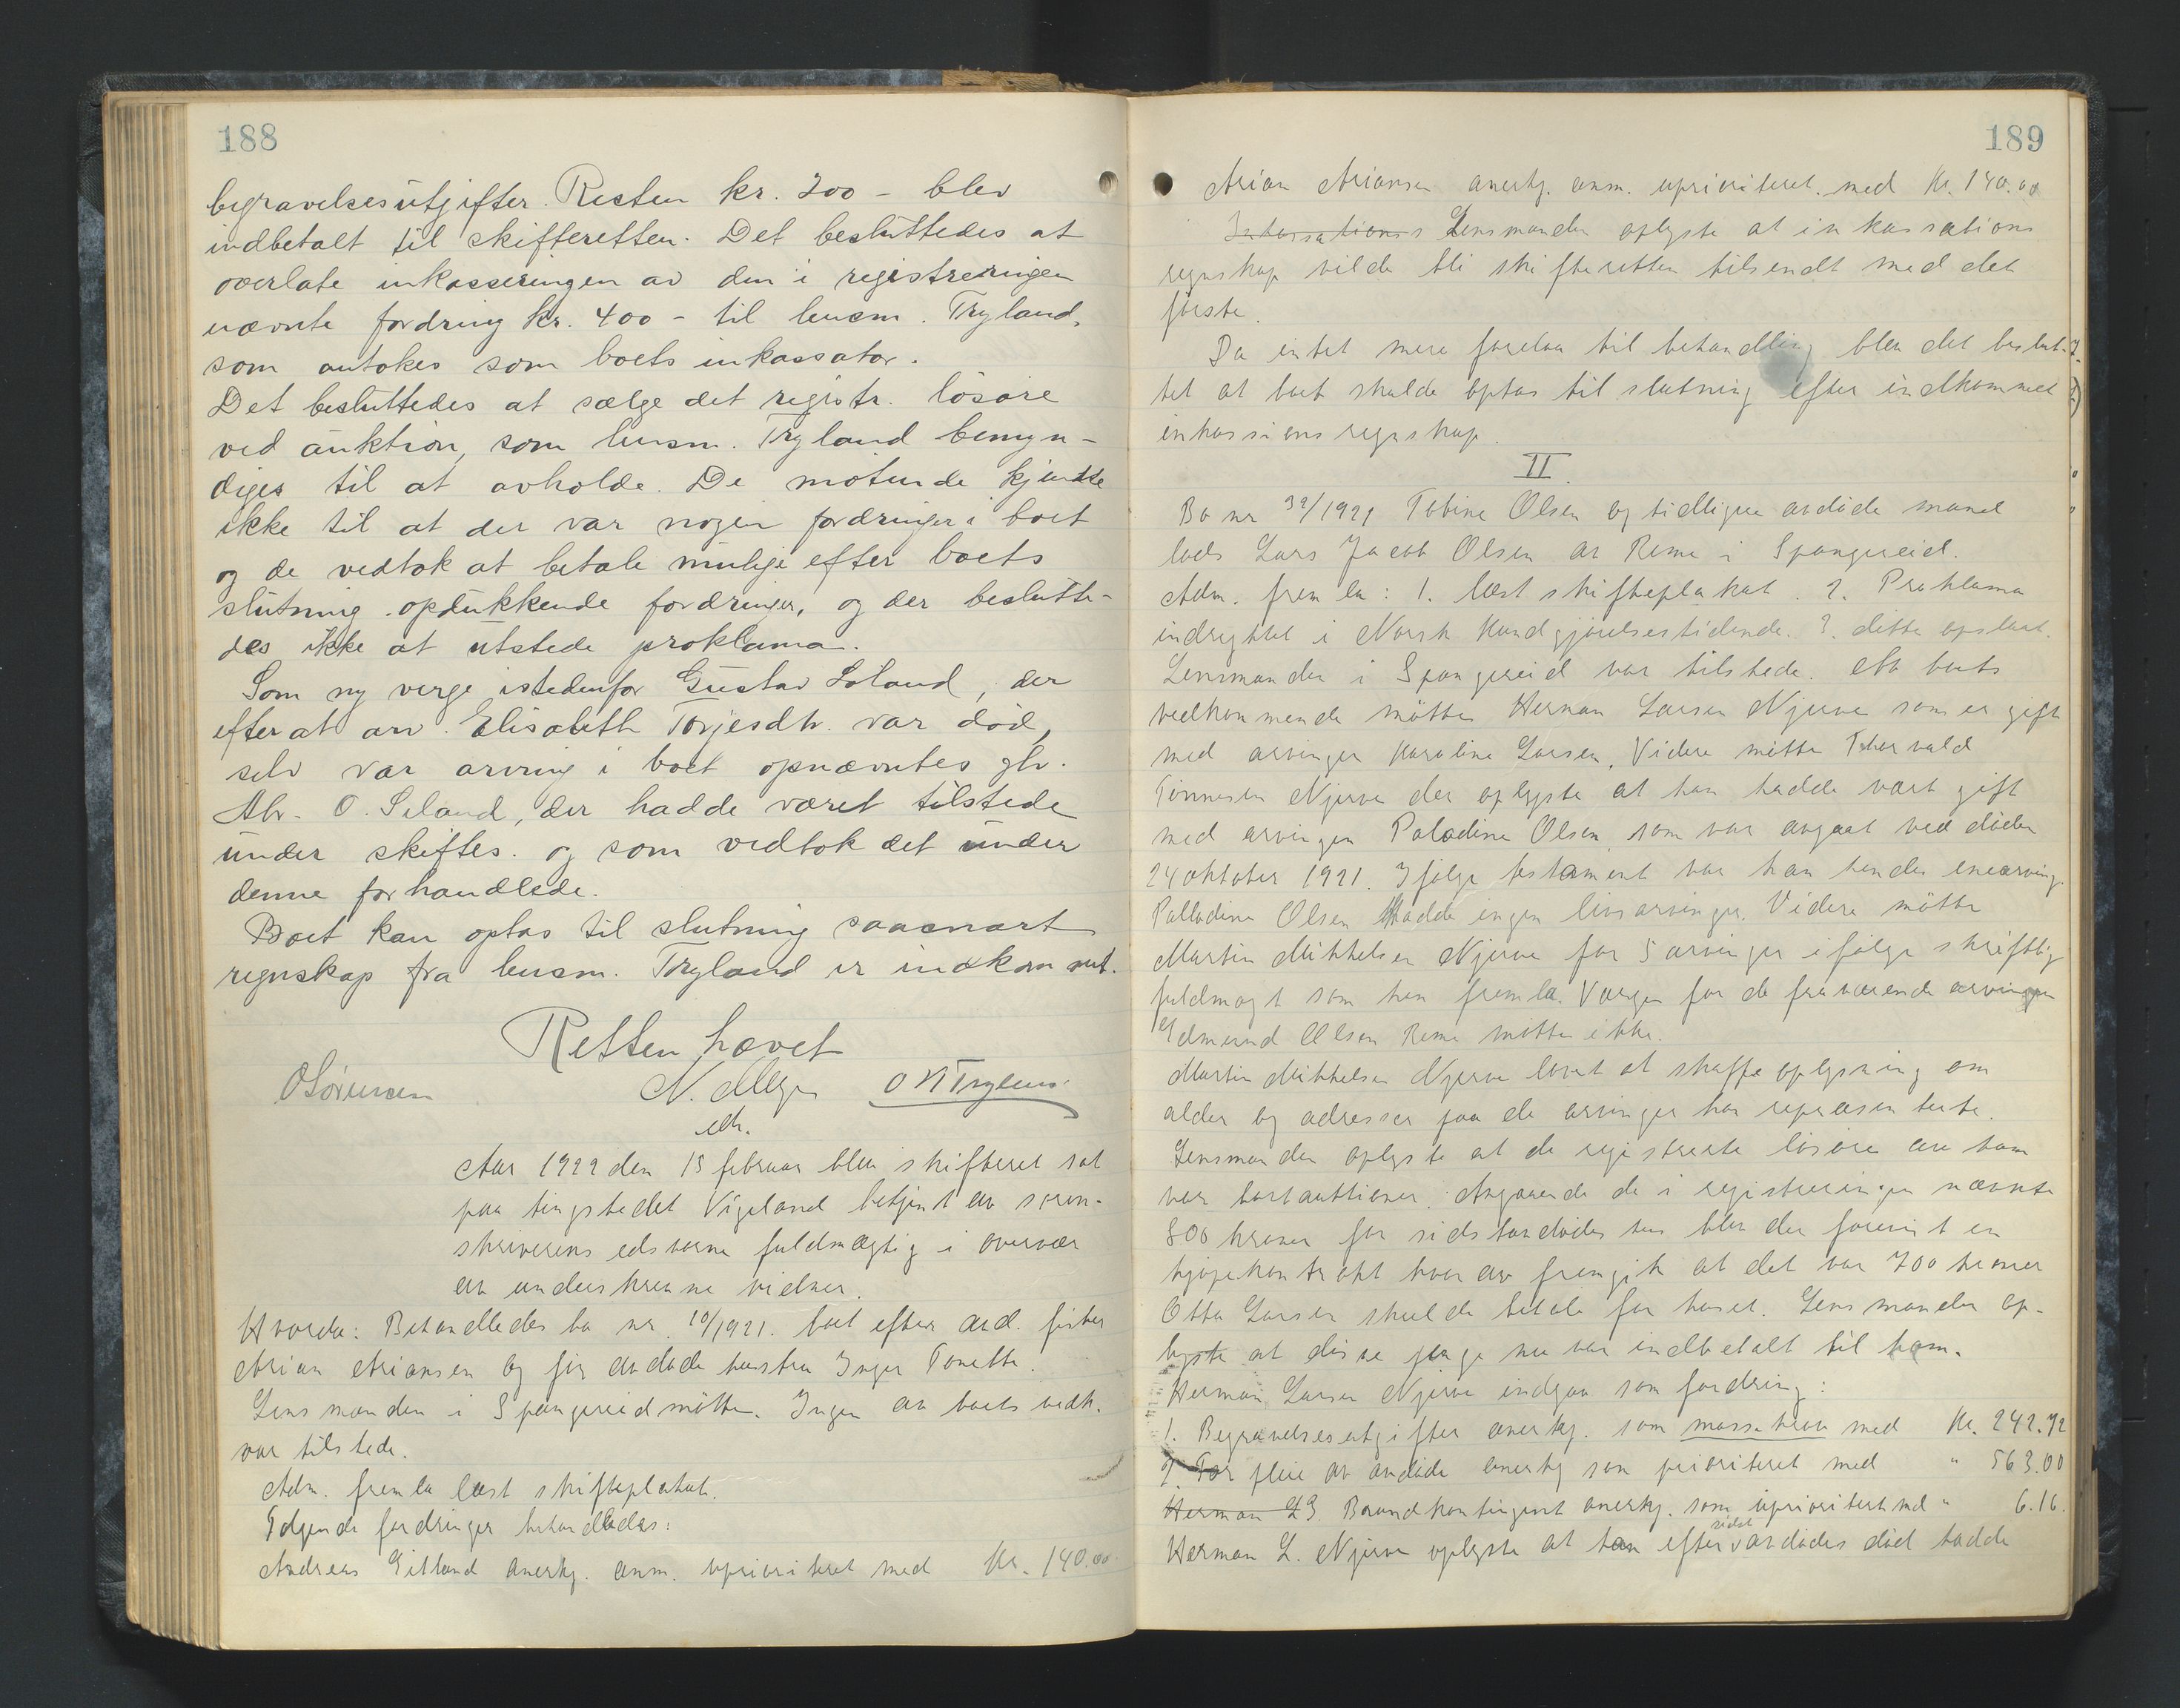 188
begravelsesutgifter. Resten kr. 200 - blev
indbetalt til skifteretten. Det besluttedes at
overlate inkasseringen av den i registreringen
nævnte fordring kr. 400 - til lensm. Tryland,
som antokes som boets inkassator.
Det besluttedes at sælge det registr. løsøre
ved auktion, som lensm. Tryland bemyn-
diges til at avholde. De møtende kjendte
ikke til at der var nogen fordringer i boet
og de vedtok at betale mulige efter boets
slutning opdukkende fordringer, og der beslutte-
des ikke at utstede proklama.
Som ny verge istedenfor Gustav Søland, der
efter at arv. Elisabeth Torjesdtr. var død,
selv var arving i boet opnævntes gbr.
Abr. O. Seland, der hadde været tilstede
under skiftes. og som vedtok det under
denne forhandlede.
Boet kan optas til slutning saasnart
regnskap fra lensm. Tryland er indkommet.
Retten hævet
O Sørensen N. Meyer O N Tryland
edv.
Aar 1922 den 15 februar blev skifteret sat
paa tingstedet Vigeland betjent av soren-
skriverens edsvorne fuldmægtig i overvær
av underskrevne vidner.
Hvorda: Behandledes bo nr. 10/1921. boet efter avd. fisker
Arian Ariansen og før avdøde hustru Inger Tonette.
Lensmanden i Spangereid møtte. Ingen av boets vedk.
var tilstede.
Adm. fremla læst skifteplakat.
Følgende fordringer behandledes:
Andreas Gitland anerkj. anm. uprioriteret med Kr. 140.00
189
Arian Ariansen anerkj. anm. uprioriteret med Kr. 140.00
Inkassations Lensmanden oplyste at inkassations
regnskap vilde bli skifteretten tilsendt med det
første.
Da intet mere forelaa til behandling blev det beslut-
tet at boet skulde optas til slutning efter indkommet
inkassions regnskap.
II.
Bo nr 32/1921 Tobine Olsen og tidligere avdøde mand
lods Lars Jacob Olsen av Reme i Spangereid.
Adm. fremla: 1. læst skifteplakat. 2. Proklama
indrykket i Norsk Kundgjørelsestidende. 3. dette opslaat.
Lensmanden i Spangereid var tilstede. Av boets
vedkommende møtte Herman Larsen Njerve som er gift
med arvingen Karoline Larsen. Videre møtte Thorvald
Tønnesen Njerve der oplyste at han hadde vært gift
med arvingen Paladine Olsen, som var avgaat ved døden
24 oktober 1921. Ifølge testament var han hendes enearving.
Palladine Olsen hadde ingen livsarvinger. Videre møtte
Martin Mikkelsen Njerve for 5 arvinger ifølge skriftlig
fuldmagt som han fremla. Værgen for de fraværende arvinger
Edmund Olsen Reme møtte ikke.
Martin Mikkelsen Njerve lovet at skaffe oplysning om
alder og adresser paa de arvinger han repræsenterte.
Lensmanden oplyste at de registrerte løsøre av ham
var bortauktioner. Angaaende de i registreringen nævnte
800 kroner for sidstavdødes hus blev der forevist en
kjøpekontrakt hvorav fremgik at det var 700 kroner
Otto Larsen skulde betale for huset. Lensmanden op-
lyste at disse penge nu var indbetalt til ham.
Herman Larsen Njerve indgaa som fordring:
1. Begravelsesutgifter anerkj. som massekrav med Kr. 242.72
2. For pleie av avdøde anerkj som prioriteret med " 563.00
Herman L3. Brandkontingent anerkj. som uprioritert med " 6.16.
Herman L. Njerve oplyste at han efter sidst avdødes død hadde